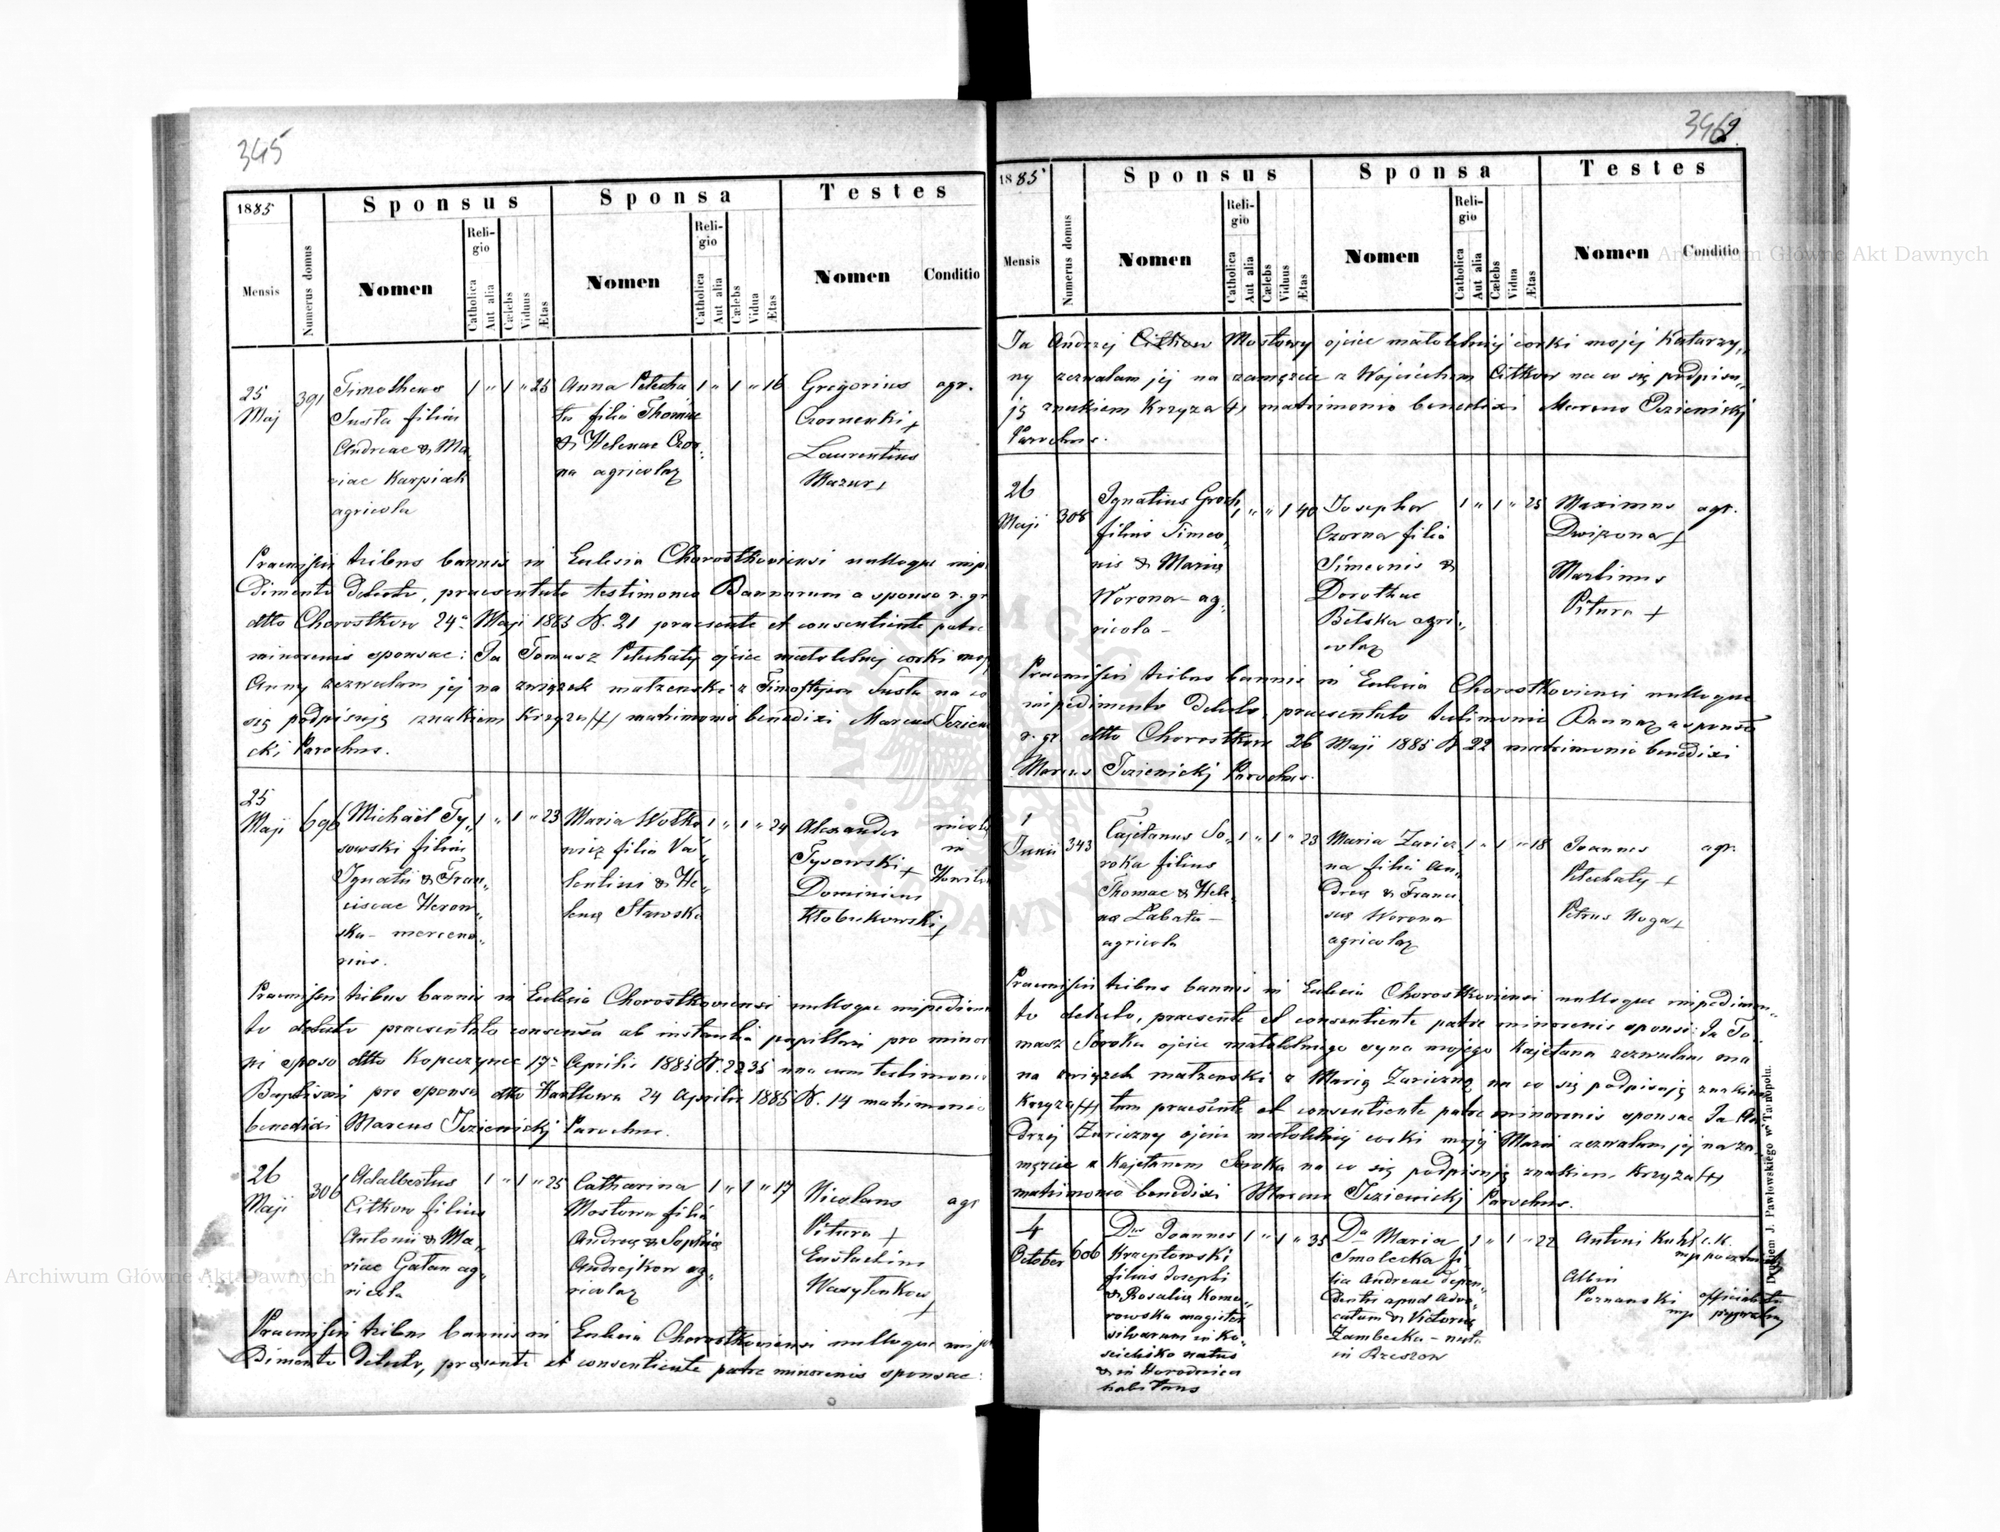 345
1885
Sponsus
Sponsa
Testes
Mensis
Numerus domus
Nomen
Religio
Catholica
Aut alia
Cælebs
Viduus
Ætas
Nomen
Religio
Catholica
Aut alia
Cælebs
Vidua
Ætas
Nomen
Conditio
25 Maj
391
Timotheus
filius
Andreae & Ma
riae Karpiak
agricola
1 " 1 " 25
Anna Pelecha
ta filia Thomae
& Helenae Czor
na agricolar
1 " 1 " 16
Gregorius
+
Laurentius
Mazur +
agr.
Praemissis tribus bannis in Eclesia Chorostkoviensi nulloque impe
dimento detecto, praesentato testimonio Bannorum a sponso r. gr
dtto Chorostkow 24a Maji 1885 N. 21 praesente et consentiente patre
minorenis sponsae: Ja Tomasz Pelechaty ojciec małoletniej corki mojej
Anny zezwalam jej na związek małzenski z Tymoftyjem na co
się podpisuję znakiem Krzyza ++ matrimonio benedixi Marcus
cki Parochus.
25
Maji
696
Michaël Ty
sowski filius
Ignatii & Fran
ciscae Heron
ska - mercena
rius.
1 " 1 " 23
Maria Wołko
wicz filia Va
lentini & He
lenę Stawska
1 " 1 " 24
Alexander
Tysowski +
Dominicus
Kłobukowski +
in
Praemissis tribus bannis in Eclesia Chorostkoviensi nulloque impedimen
to detecto praesentato consensu ab instantia pupillari pro minor
ni sposo dtto Kopeczynce 17a Aprilis 1885 N. 2235 una cum testimonio
Baptismi pro sponsa dtto 24 Aprilis 1885 N. 14 matrimonio
benedixi Marcus Parochus.
26
Maji
306
Adalbertus
Citkow filius
Antonii & Ma
riae Gałan ag
ricola
1 " 1 " 25
Catharina
Mostowa filia
Andreę & Sophię
Andrejkow ag
ricolar
1 " 1 " 17
Nicolaus
Pitura +
Eustachius
Wasylenkow +
agr
Praemissis tribus bannis in Eclesia Chorostkoviensi nulloque impe
dimento detecto, praesente et consentiente patre minorenis sponsae:
346
1885
Sponsus
Sponsa
Testes
Mensis
Numerus domus
Nomen
Religio
Catholica
Aut alia
Cælebs
Viduus
Ætas
Nomen
Religio
Catholica
Aut alia
Cælebs
Vidua
Ætas
Nomen
Conditio
Ja Andrzej Citkow Mostowy ojciec małoletniej corki mojej Katarzy
ny zezwalam jej na zamęzcie z Wojciechem Citkow na co się podpisu
ję znakiem Krzyza ++ matrimonio benedixi Marcus
Parochus.
26
Maji
308
Ignatius Groch
filius Simeo
nis & Marię
Worona - ag
ricola -
1 " " 1 40
Josepha
Czorna filia
Simeonis &
Dorothae
Bilska agri
colar
1 " 1 " 25
Maximus
+
Martinus
Pitura +
agr.
Praemissis tribus bannis in Eclesia Chorostkoviensi nulloque
impedimento detecto, praesentato testimonio Bannor a sponso
r. gr dtto Chorostkow 26 Maji 1885 N 22 matrimonio benedixi
Marcus Parochus.
1
Junii
343
Cajetanus So
roka filius
Thomae & Hele
nę Łabata -
agricola
1 " 1 " 23
Maria Zaricz
na filia An
dreę & Franci
scę Worona
agricolar
1 " 1 " 18
Joannes
Pelechaty +
Petrus Noga +
agr.
Praemissis tribus bannis in Eclesia Chorostkoviensi nulloque impedimen
to detecto, praesente et consentiente patre minorenis sponsi: Ja To
masz Soroka ojciec małoletniego syna mojego Kajetana zezwalam mu
na związek małzenski z Marią Zariczną na co się podpisuję znakiem
Krzyza ++ tum praesente et consentiente patre minorenis sponsae Ja An
drzej Zariczny ojciec małoletniej corki mojej Marii zezwalam jej na za
męzcie z Kajetanem Soroka na co się podpisuję znakiem Krzyza ++
matrimonio benedixi Marcus Parochus.
4
October
606
Dnus Joannes
Krzeptowski
filius Josephi
& Rosalię Komo
rowska magister
silvarum in Ko
natus
& in Horodnica
habitans
1 " 1 " 35
Da Maria
Smolecka fi
lia Andreae depen
dentis apud Advo
catum & Victorię
Zambecka - nata
in Rzeszow
1 " 1 " 22
Antoni
mp
c. K.
Albin
Poznanski
mp
Drukiem J. Pawłowskiego w Tarnopolu.
Archiwum Główne Akt Dawnych
Archiwum Główne Akt Dawnych